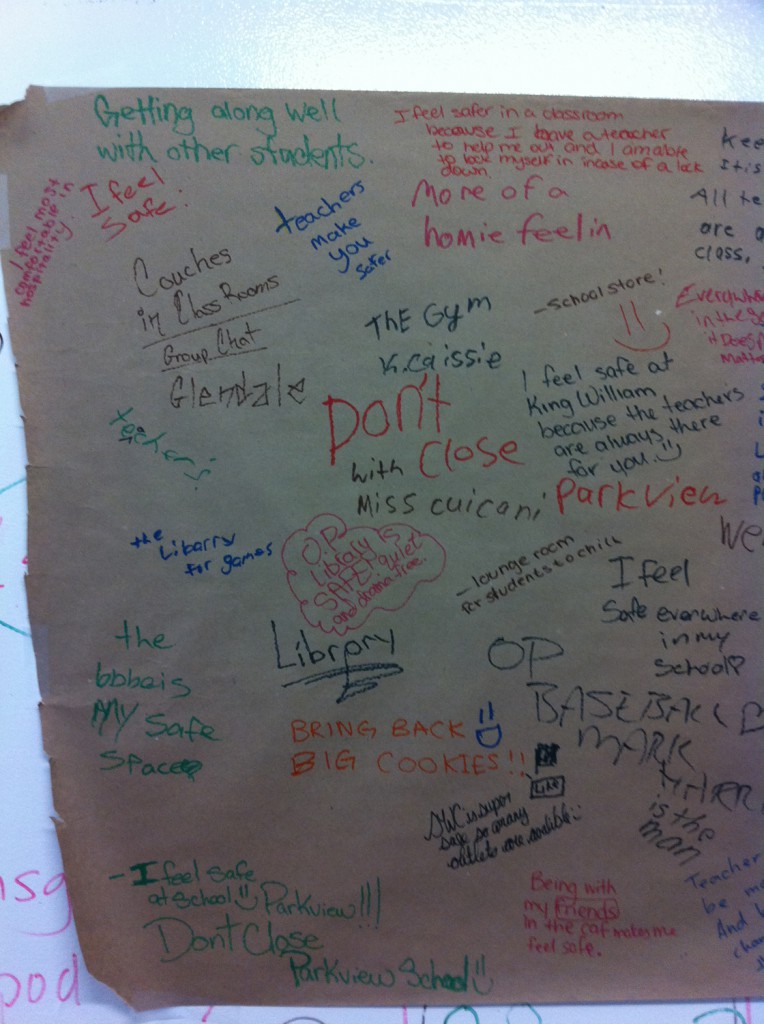 Getting along well
with other students.
I feel safer in a classroom
because I have a teacher
to help me out and I am able
to lock myself in incase of a lock
down.
Kee
It is
I feel most
comfortable in
hospitality.
I feel
Safe!
teachers
make
you
safer
More of a
homie feelin
All te
are a
class.
Couches
in ClassRooms
Group Chat
Glendale
THE GYM
K.Caissie
- School store!
Everywhe
in the
it Does
Matter
teachers
DON'T
Close
Parkview
with
Miss cuicani
I feel safe at
King William
because the teachers
are always there
for you.
the
Libarry
for games
O.P
Library is
SAFE, quiet
and drama free.
- lounge room
for students to chill
We
I Feel
Safe everywhere
in my
school?
the
bbbais
MY Safe
Space
Library
OP
BASEBALL
MARK
HARR
is the
man
BRING BACK
BIG COOKIES!!
LIKE
is super
safe so many
outlets are
- I feel safe
at School Parkview!!!
Dont Close
Parkview School
Being with
my friends
in the caf makes me
feel safe.
Teacher
be
And
cha
nsg
pod